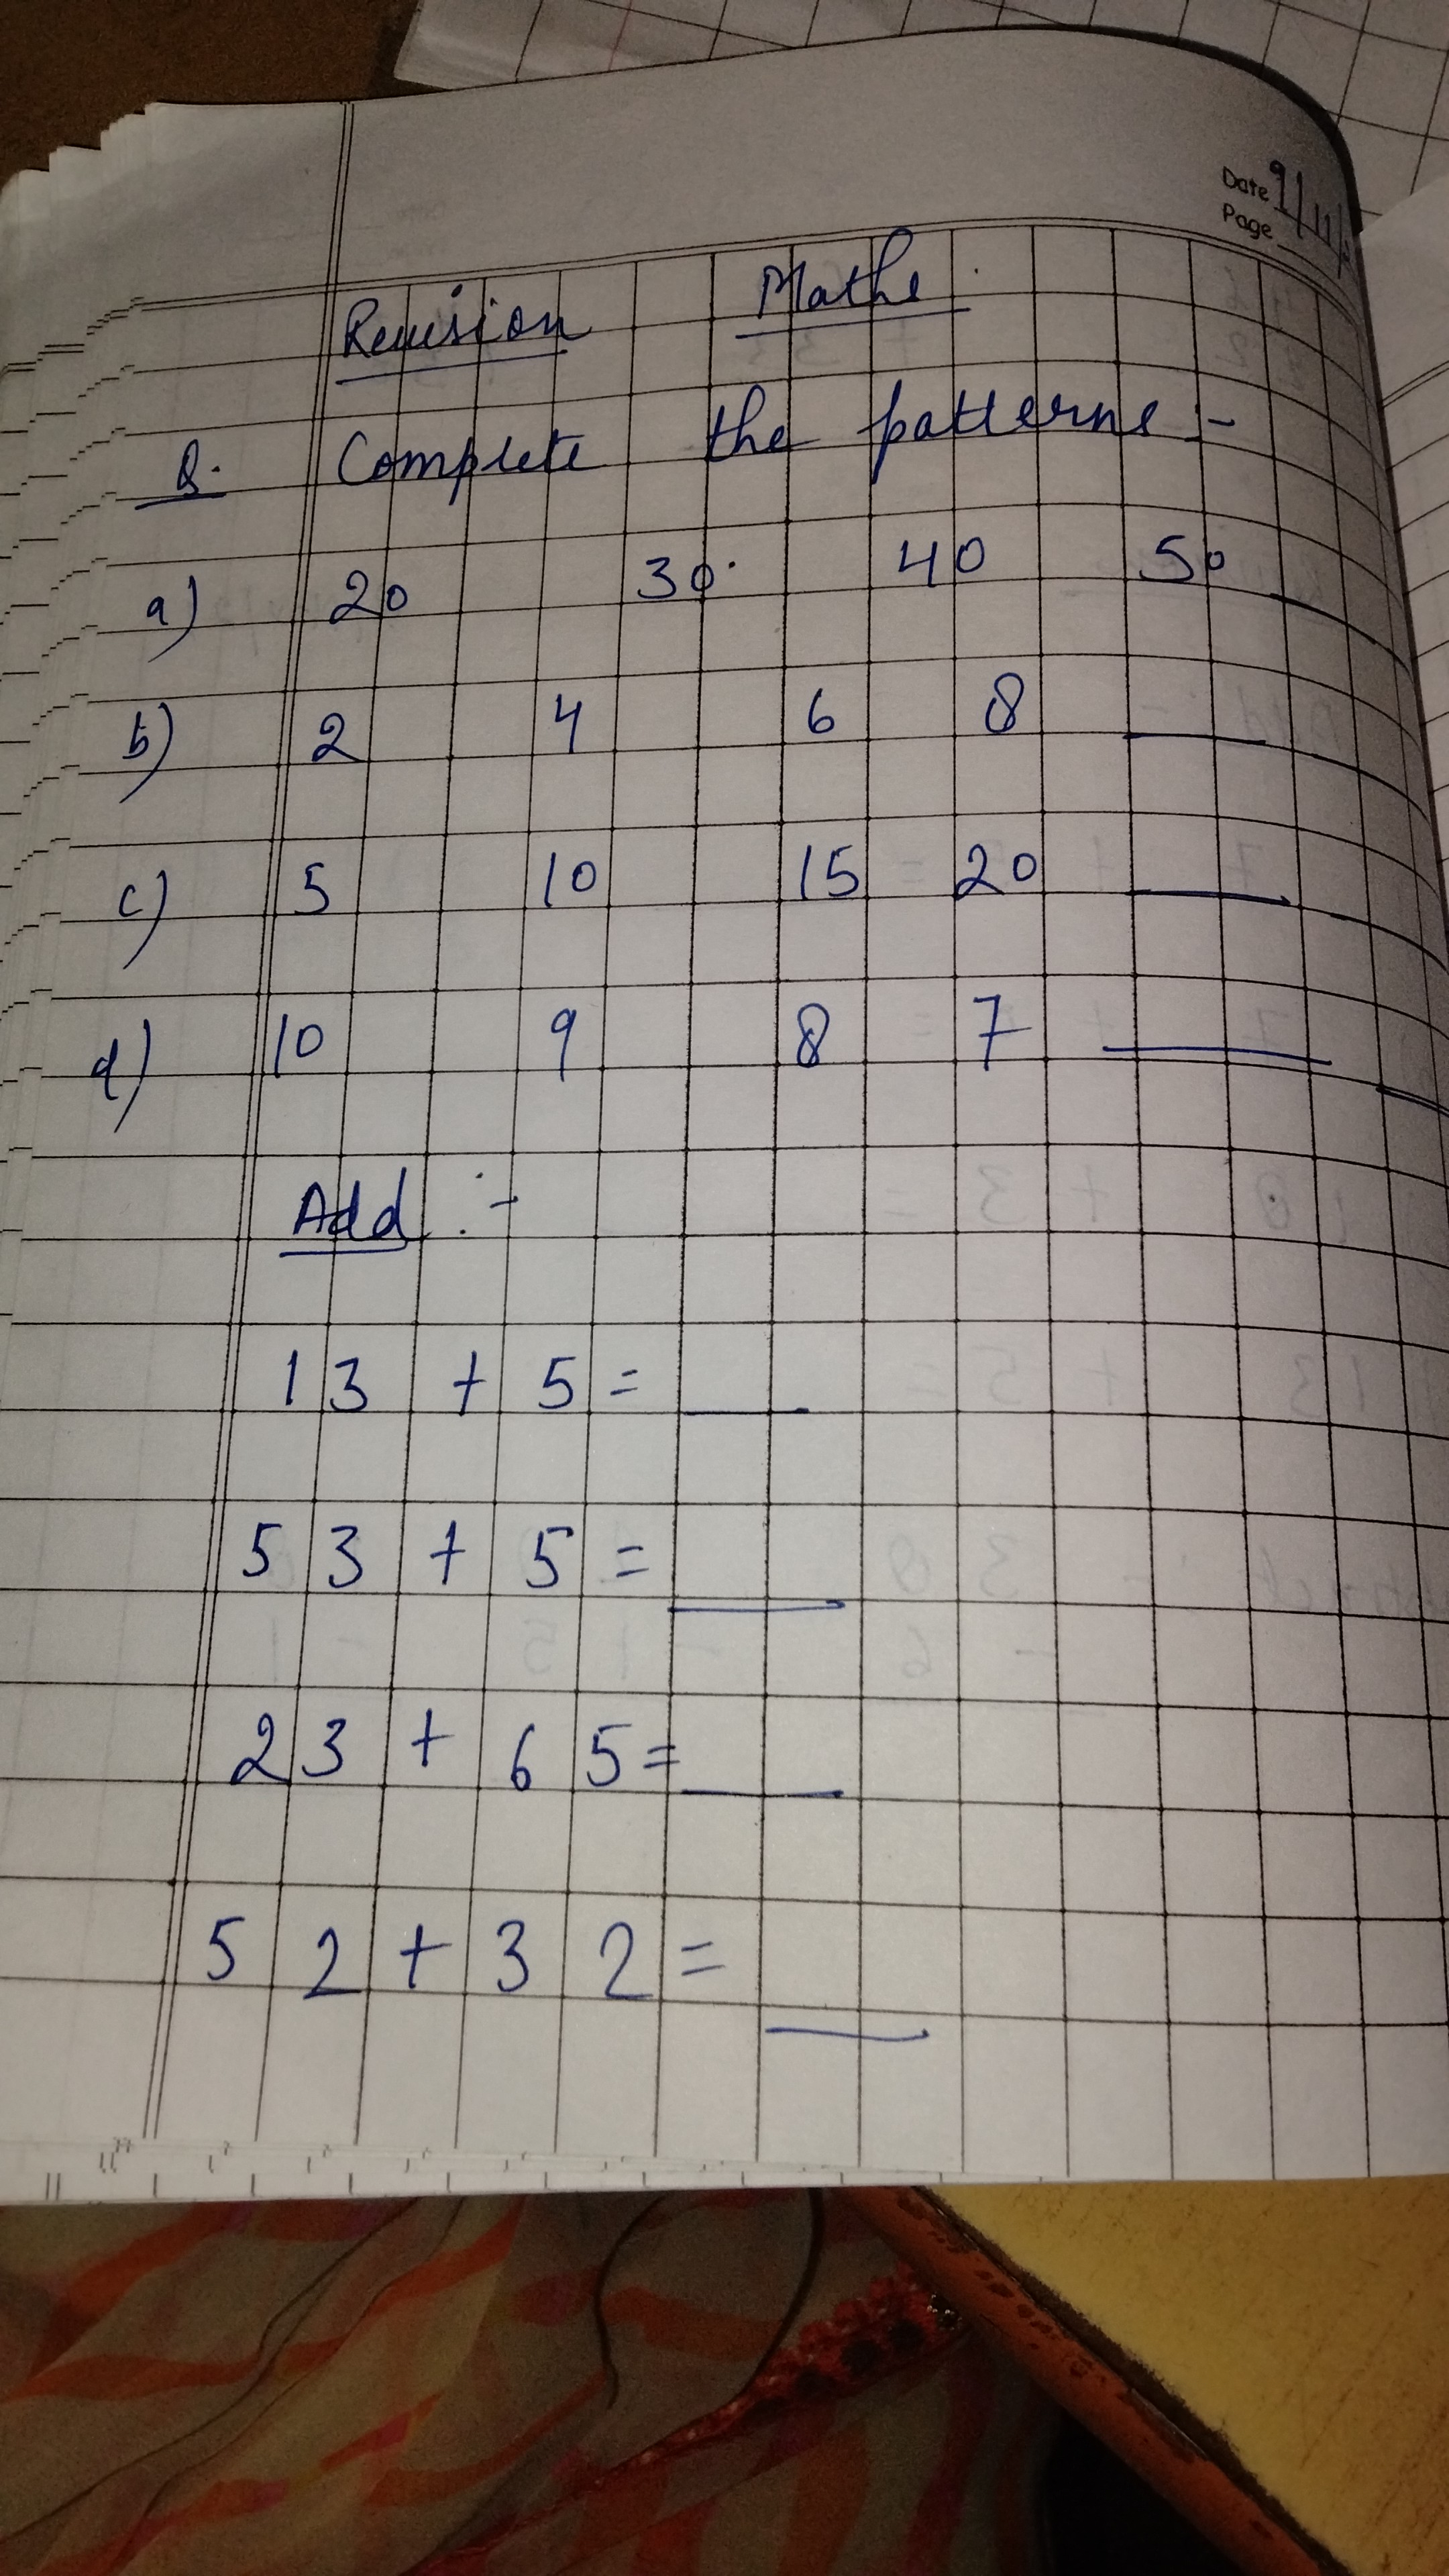 Date 9/11/
Page
Revision Maths.
Q. Complete the patterns :-
a) 20 30 40 50 __
b) 2 4 6 8 __
c) 5 10 15 20 __
d) 10 9 8 7 __
Add :-
13 + 5 = __
53 + 5 = __
23 + 65 = __
52 + 32 = __